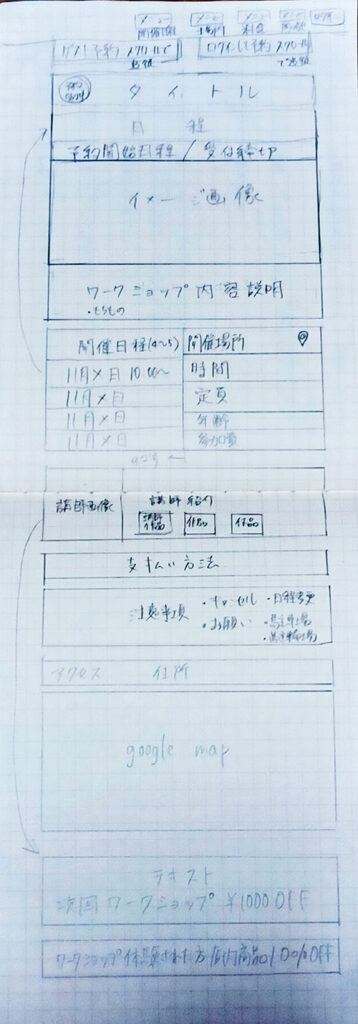 メニュー メニュー メニュー メニュー
開催日程 専門 料金
ゲスト予約 スクロールで
追従
ログインして予約 スクロール
で追従
タイトル
日程
予約開始日程 / 受付締切
イメージ画像
ワークショップ内容説明
・もちもの
開催日程(4〜5) 開催場所
11月×日 10:00〜 時間
11月×日 定員
11月×日 年齢
11月×日 参加費
講師画像 講師紹介
講師作品 作品 作品
支払い方法
注意事項 ・キャンセル ・日程変更
・お願い ・駐車場
・駐輪場
アクセス 住所
google map
テキスト
次回ワークショップ ¥1000 OFF
ワークショップ体験された方 店内商品10%OFF